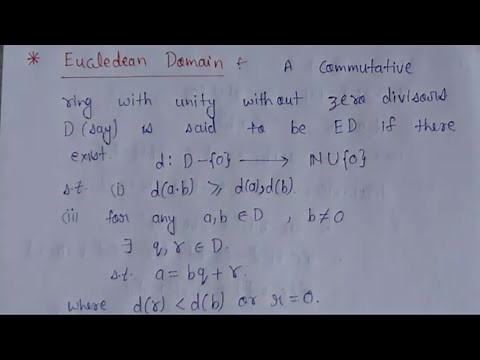 * Eucledean Domain :- A Commutative
ring with unity without zero divisors
D (say) is said to be ED if there
exist d: D-{0} ⟶ N∪{0}
s.t. (i) d(a·b) ≥ d(a), d(b).
(ii) for any a, b ∈ D , b ≠ 0
∃ q, r ∈ D.
s.t. a = bq + r.
where d(r) < d(b) or r = 0.